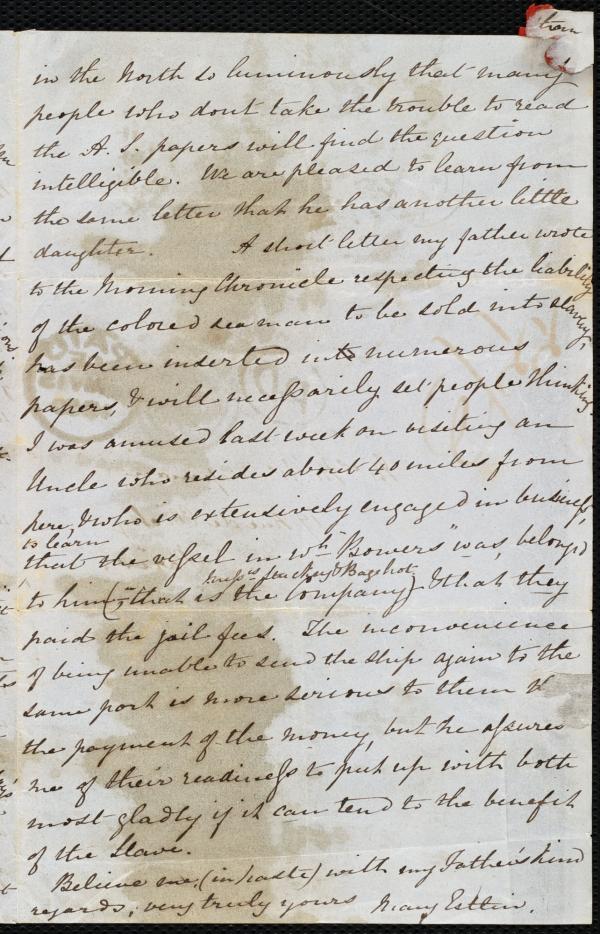 in the North so luminously that many
people who dont take the trouble to read
the A. S. papers will find the question
intelligible. We are pleased to learn from
the same letter that he has another little
daughter. A short letter my father wrote
to the Morning Chronicle respecting the liability
of the colored seaman to be sold into slavery,
has been inserted into numerous
papers, & will necessarily set people thinking.
I was amused last week on visiting an
Uncle who resides about 40 miles from
here, & who is extensively engaged in business,
to learn
that the vessel in wh. "Bowers" was, belong'd
Stuckey & Bagehot
to him (that is the Company) & that they
paid the jail fees. The inconvenience
of being unable to send the ship again to the
same port is more serious to them
the payment of the money, but he assures
me of their readiness to put up with both
most gladly if it can tend to the benefit
of the Slave.
Believe me, (in haste) with my Father's kind
regards, very truly yours Mary Estlin.